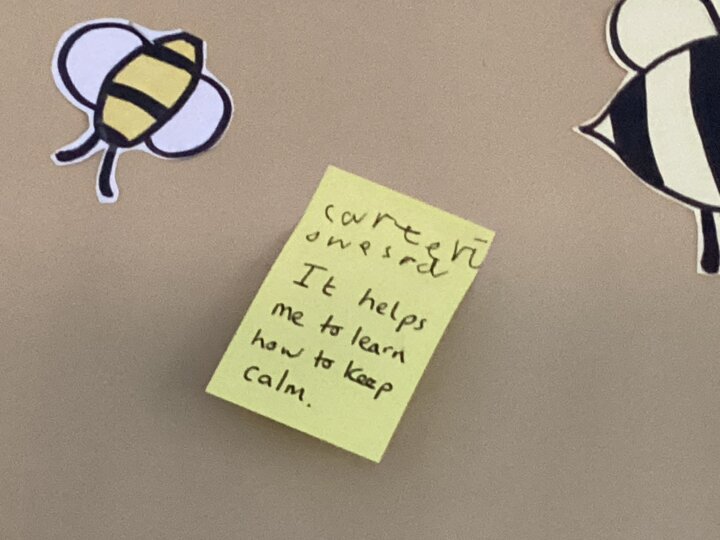 carteri
owesra
It helps
me to learn
how to keep
calm.